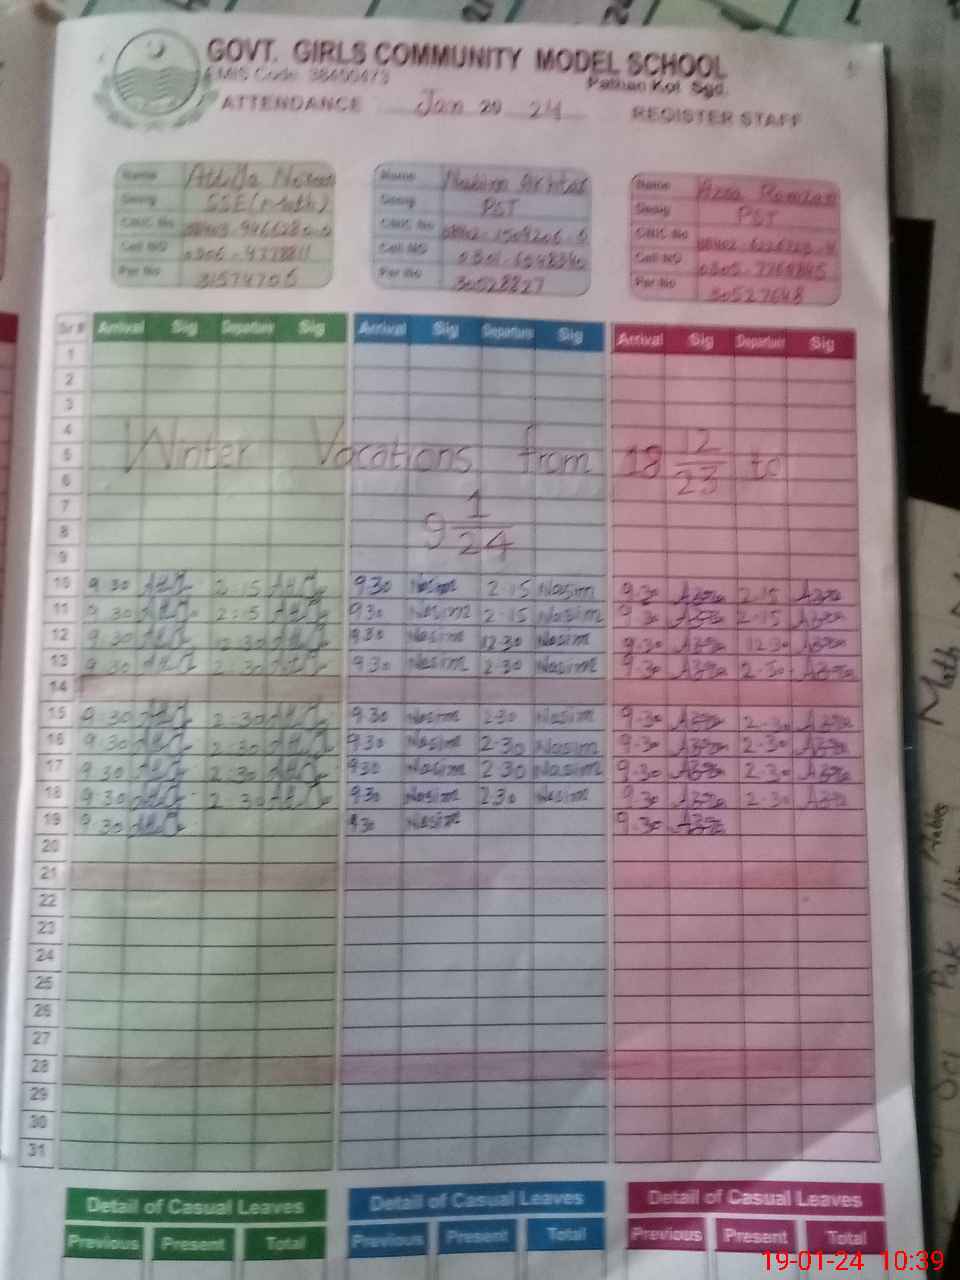 GOVT. GIRLS COMMUNITY MODEL SCHOOL
EMIS Code 38400473
Pathan Kot Sgd.
ATTENDANCE Jan 20 24 REGISTER STAFF
Name Name Nasim Akhtar Name Azra Ramzan
Desig SSE(Math) Desig PST Desig PST
CNIC No CNIC No CNIC No
Cell NO Cell NO Cell NO
Per No 31574706 Per No 30528827 Per No 30527648
Sr # Arrival Sig Departure Sig Arrival Sig Departure Sig Arrival Sig Departure Sig
1
2
3
4
5 Winter Vocations from 18 12/23 to
6
7
8 9 1/24
9
10 9.30 2.15 9.30 Nasim 2.15 Nasim 9.30 Azra 2.15 Azra
11 9.30 2:15 9.30 Nasim 2.15 Nasim 9.30 Azra 2.15 Azra
12 9.30 12.30 9.30 Nasim 12.30 Nasim 9.30 Azra 12.30 Azra
13 9.30 2.30 9.30 Nasim 2.30 Nasim 9.30 Azra 2.30 Azra
14
15 9.30 2.30 9.30 Nasim 2.30 Nasim 9.30 Azra 2.30 Azra
16 9.30 2.30 9.30 Nasim 2.30 Nasim 9.30 Azra 2.30 Azra
17 9.30 2.30 9.30 Nasim 2.30 Nasim 9.30 Azra 2.30 Azra
18 9.30 2.30 9.30 Nasim 2.30 Nasim 9.30 Azra 2.30 Azra
19 9.30 9.30 Nasim 9.30 Azra
20
21
22
23
24
25
26
27
28
29
30
31
Detail of Casual Leaves Detail of Casual Leaves Detail of Casual Leaves
Previous Present Total Previous Present Total Previous Present Total
Math
Pak
19-01-24 10:39